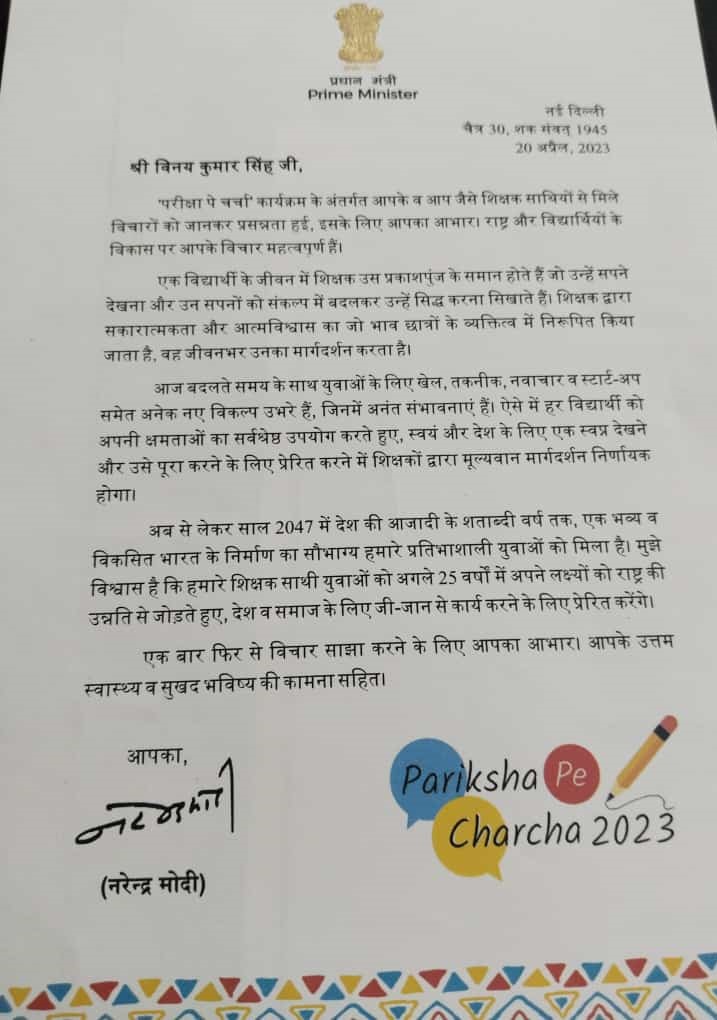 प्रधान मंत्री
Prime Minister
नई दिल्ली
चैत्र 30, शक संवत् 1945
20 अप्रैल, 2023
श्री विनय कुमार सिंह जी,
'परीक्षा पे चर्चा' कार्यक्रम के अंतर्गत आपके व आप जैसे शिक्षक साथियों से मिले
विचारों को जानकर प्रसन्नता हुई, इसके लिए आपका आभार। राष्ट्र और विद्यार्थियों के
विकास पर आपके विचार महत्वपूर्ण हैं।
एक विद्यार्थी के जीवन में शिक्षक उस प्रकाशपुंज के समान होते हैं जो उन्हें सपने
देखना और उन सपनों को संकल्प में बदलकर उन्हें सिद्ध करना सिखाते हैं। शिक्षक द्वारा
सकारात्मकता और आत्मविश्वास का जो भाव छात्रों के व्यक्तित्व में निरूपित किया
जाता है, वह जीवनभर उनका मार्गदर्शन करता है।
आज बदलते समय के साथ युवाओं के लिए खेल, तकनीक, नवाचार व स्टार्ट-अप
समेत अनेक नए विकल्प उभरे हैं, जिनमें अनंत संभावनाएं हैं। ऐसे में हर विद्यार्थी को
अपनी क्षमताओं का सर्वश्रेष्ठ उपयोग करते हुए, स्वयं और देश के लिए एक स्वप्न देखने
और उसे पूरा करने के लिए प्रेरित करने में शिक्षकों द्वारा मूल्यवान मार्गदर्शन निर्णायक
होगा।
अब से लेकर साल 2047 में देश की आजादी के शताब्दी वर्ष तक, एक भव्य व
विकसित भारत के निर्माण का सौभाग्य हमारे प्रतिभाशाली युवाओं को मिला है। मुझे
विश्वास है कि हमारे शिक्षक साथी युवाओं को अगले 25 वर्षों में अपने लक्ष्यों को राष्ट्र की
उन्नति से जोड़ते हुए, देश व समाज के लिए जी-जान से कार्य करने के लिए प्रेरित करेंगे।
एक बार फिर से विचार साझा करने के लिए आपका आभार। आपके उत्तम
स्वास्थ्य व सुखद भविष्य की कामना सहित।
आपका,
(नरेन्द्र मोदी)
Pariksha Pe
Charcha 2023